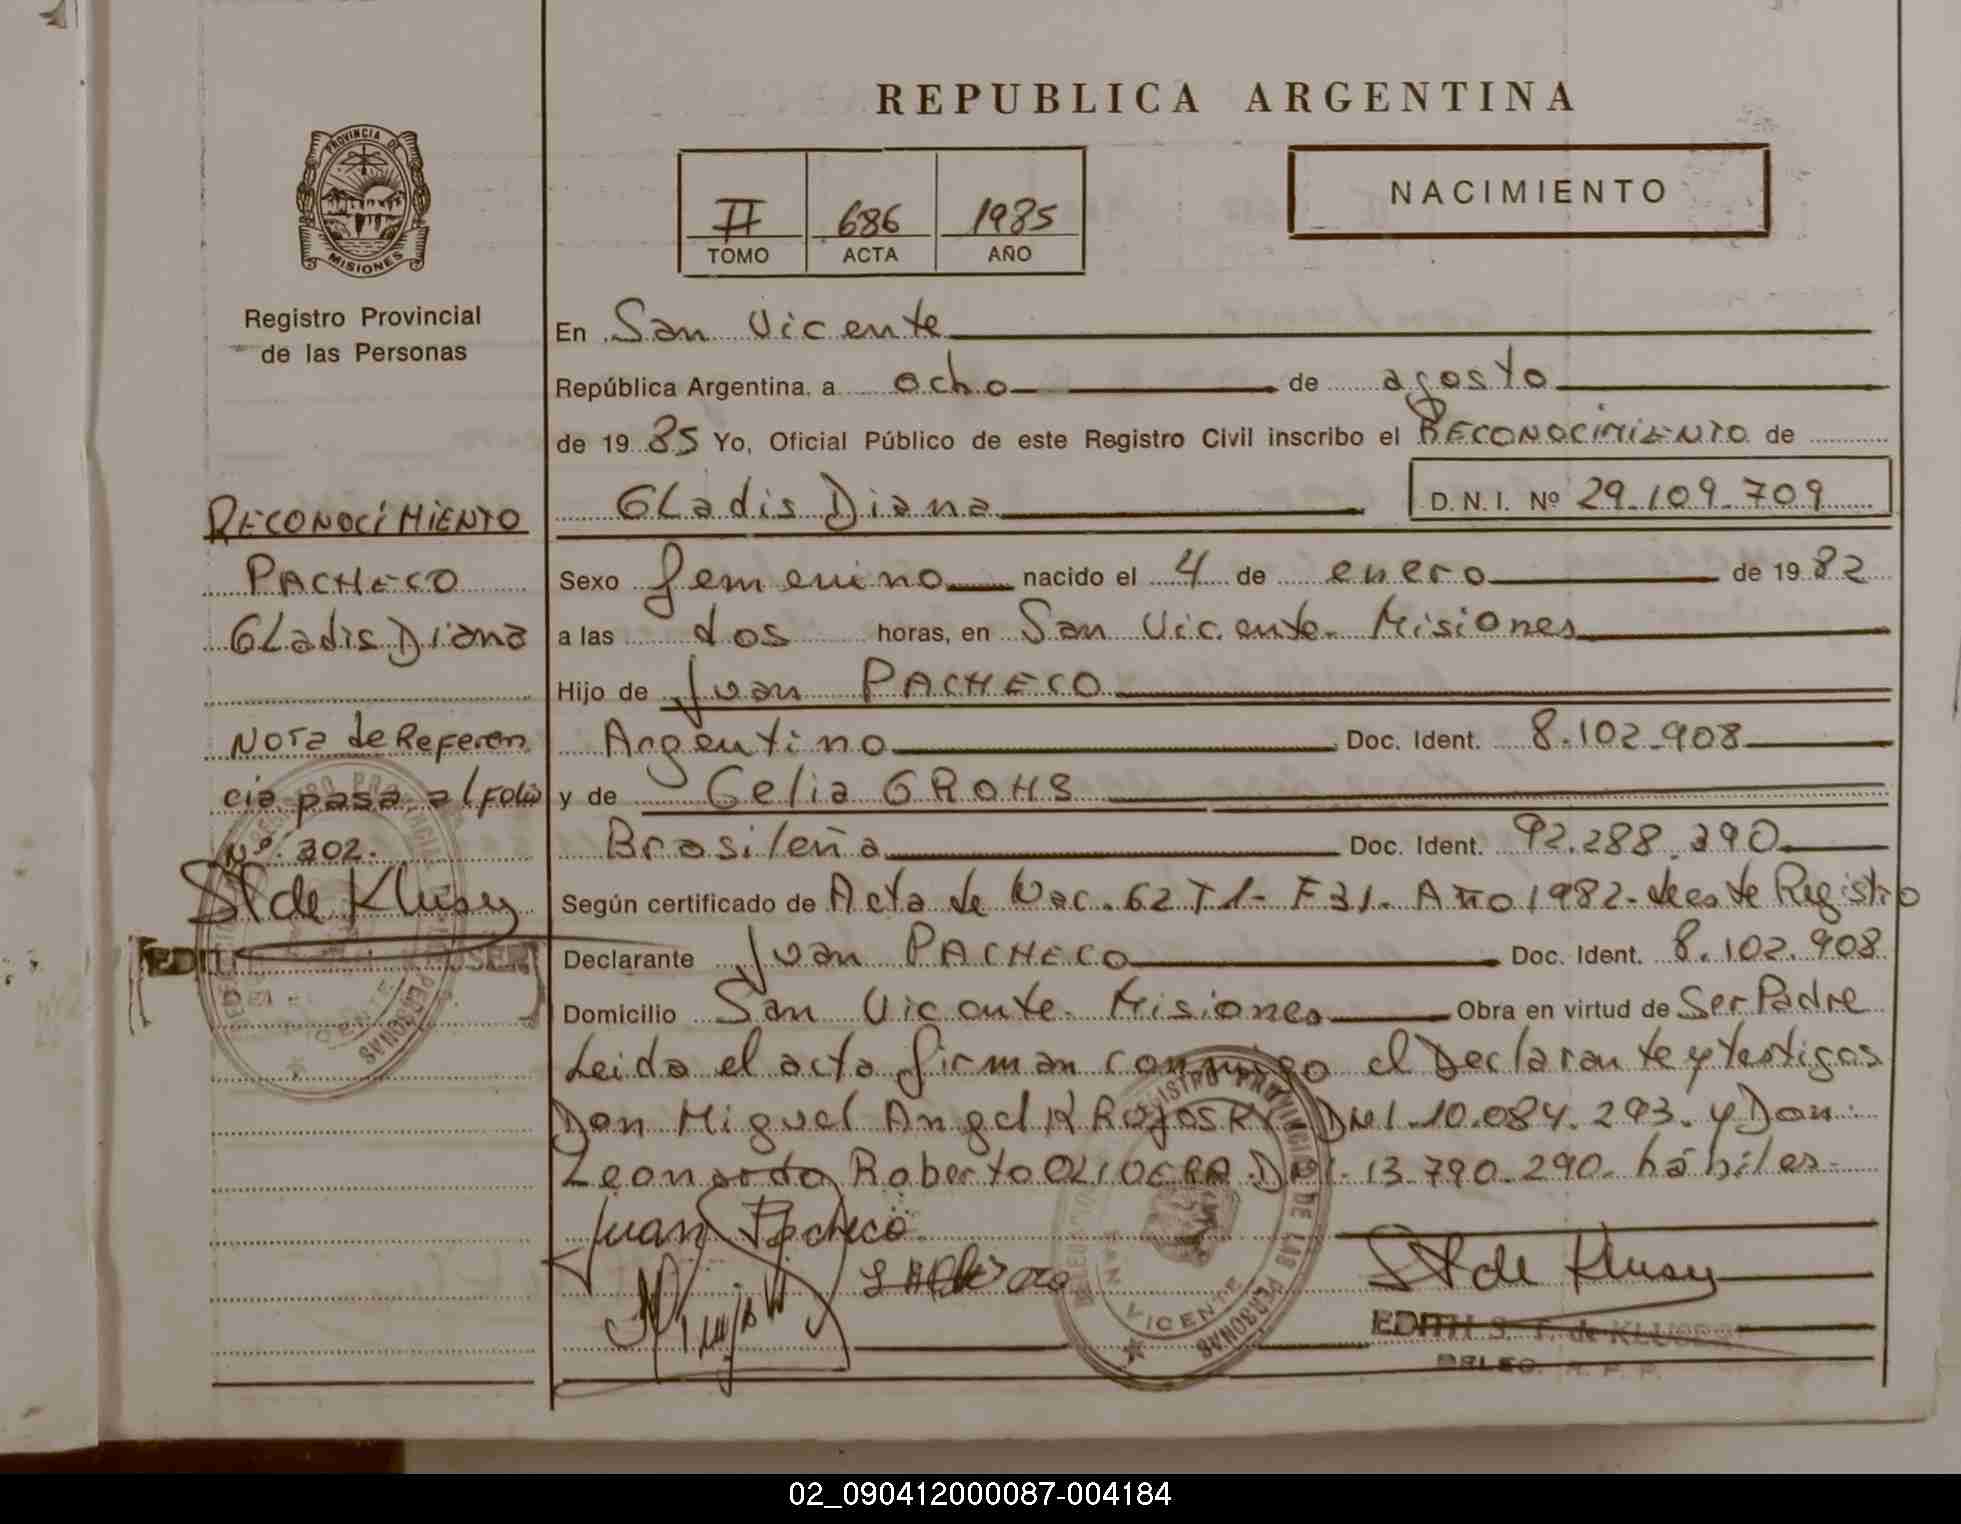 REPUBLICA ARGENTINA
PROVINCIA DE
MISIONES
II 686 1985
TOMO ACTA AÑO
NACIMIENTO
Registro Provincial
de las Personas
En San Vicente
República Argentina, a ocho de agosto
de 1985 Yo, Oficial Público de este Registro Civil inscribo el RECONOCIMIENTO de
GLadis Diana D. N. I. Nº 29.109.709
Sexo femenino nacido el 4 de enero de 1982
a las dos horas, en San Vicente. Misiones
Hijo de Juan PACHECO
Argentino Doc. Ident. 8.102.908
y de Celia GROHS
Brasileña Doc. Ident. 92.288.390
Según certificado de Acta de Nac. 62 T1- F31. Año 1982- de este Registro
Declarante Juan PACHECO Doc. Ident. 8.102.908
Domicilio San Vicente. Misiones Obra en virtud de Ser Padre
Leida el acta firman conmigo el Declarante y testigos
Don Miguel Angel K ROJOSKY DNI. 10.084.293. y Don:
Leonardo Roberto OLIVERA. DNI. 13.790.290. hábiles.
Juan Pacheco
St de Klusey
EDITH S. T. de
DELEG. R. P. P.
REGISTRO PROVINCIAL DE LAS PERSONAS
SAN VICENTE
RECONOCIMIENTO
PACHECO
GLadis Diana
Nota de Referen
cia pasa al folio
Nº. 302.
St de Klusey
02_090412000087-004184